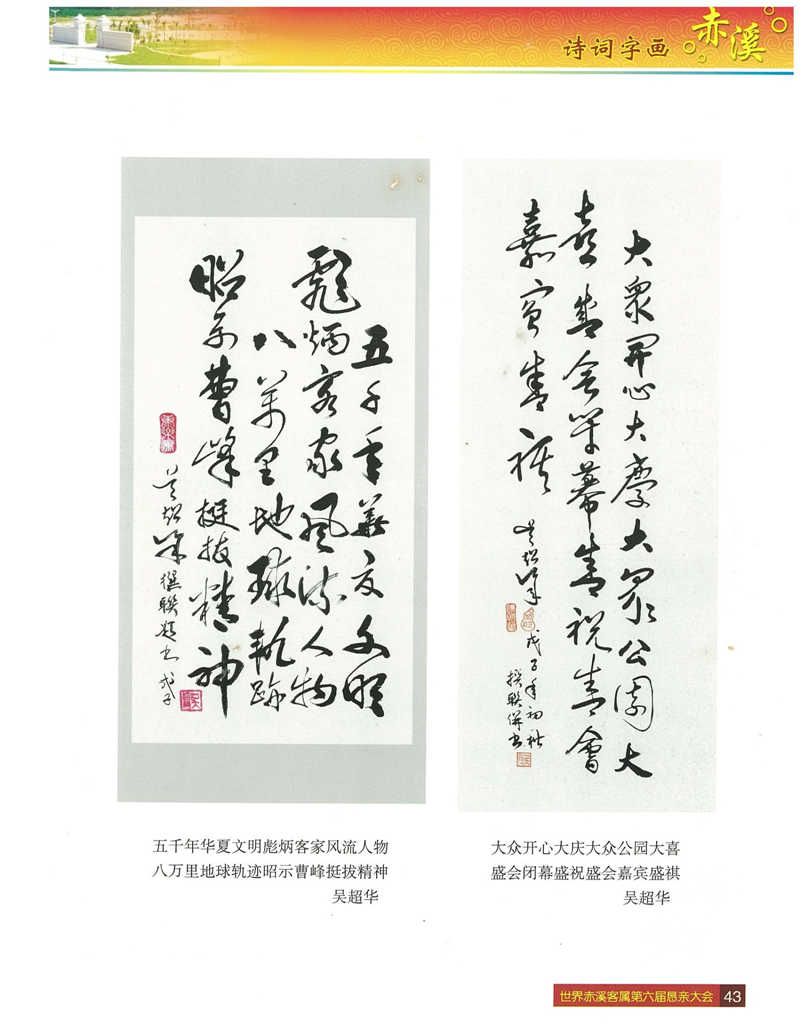 诗词字画
赤溪
五千年華夏文明
彪炳客家風流人物
八萬里地球軌跡
昭示曹峰挺拔精神
撰聯
戊子
大衆開心大慶大衆公園大
喜盛會
幕盛祝盛會
嘉賓盛祺
戊子年初秋
撰聯併書
五千年华夏文明彪炳客家风流人物
八万里地球轨迹昭示曹峰挺拔精神
吴超华
大众开心大庆大众公园大喜
盛会闭幕盛祝盛会嘉宾盛祺
吴超华
世界赤溪客属第六届恳亲大会 43